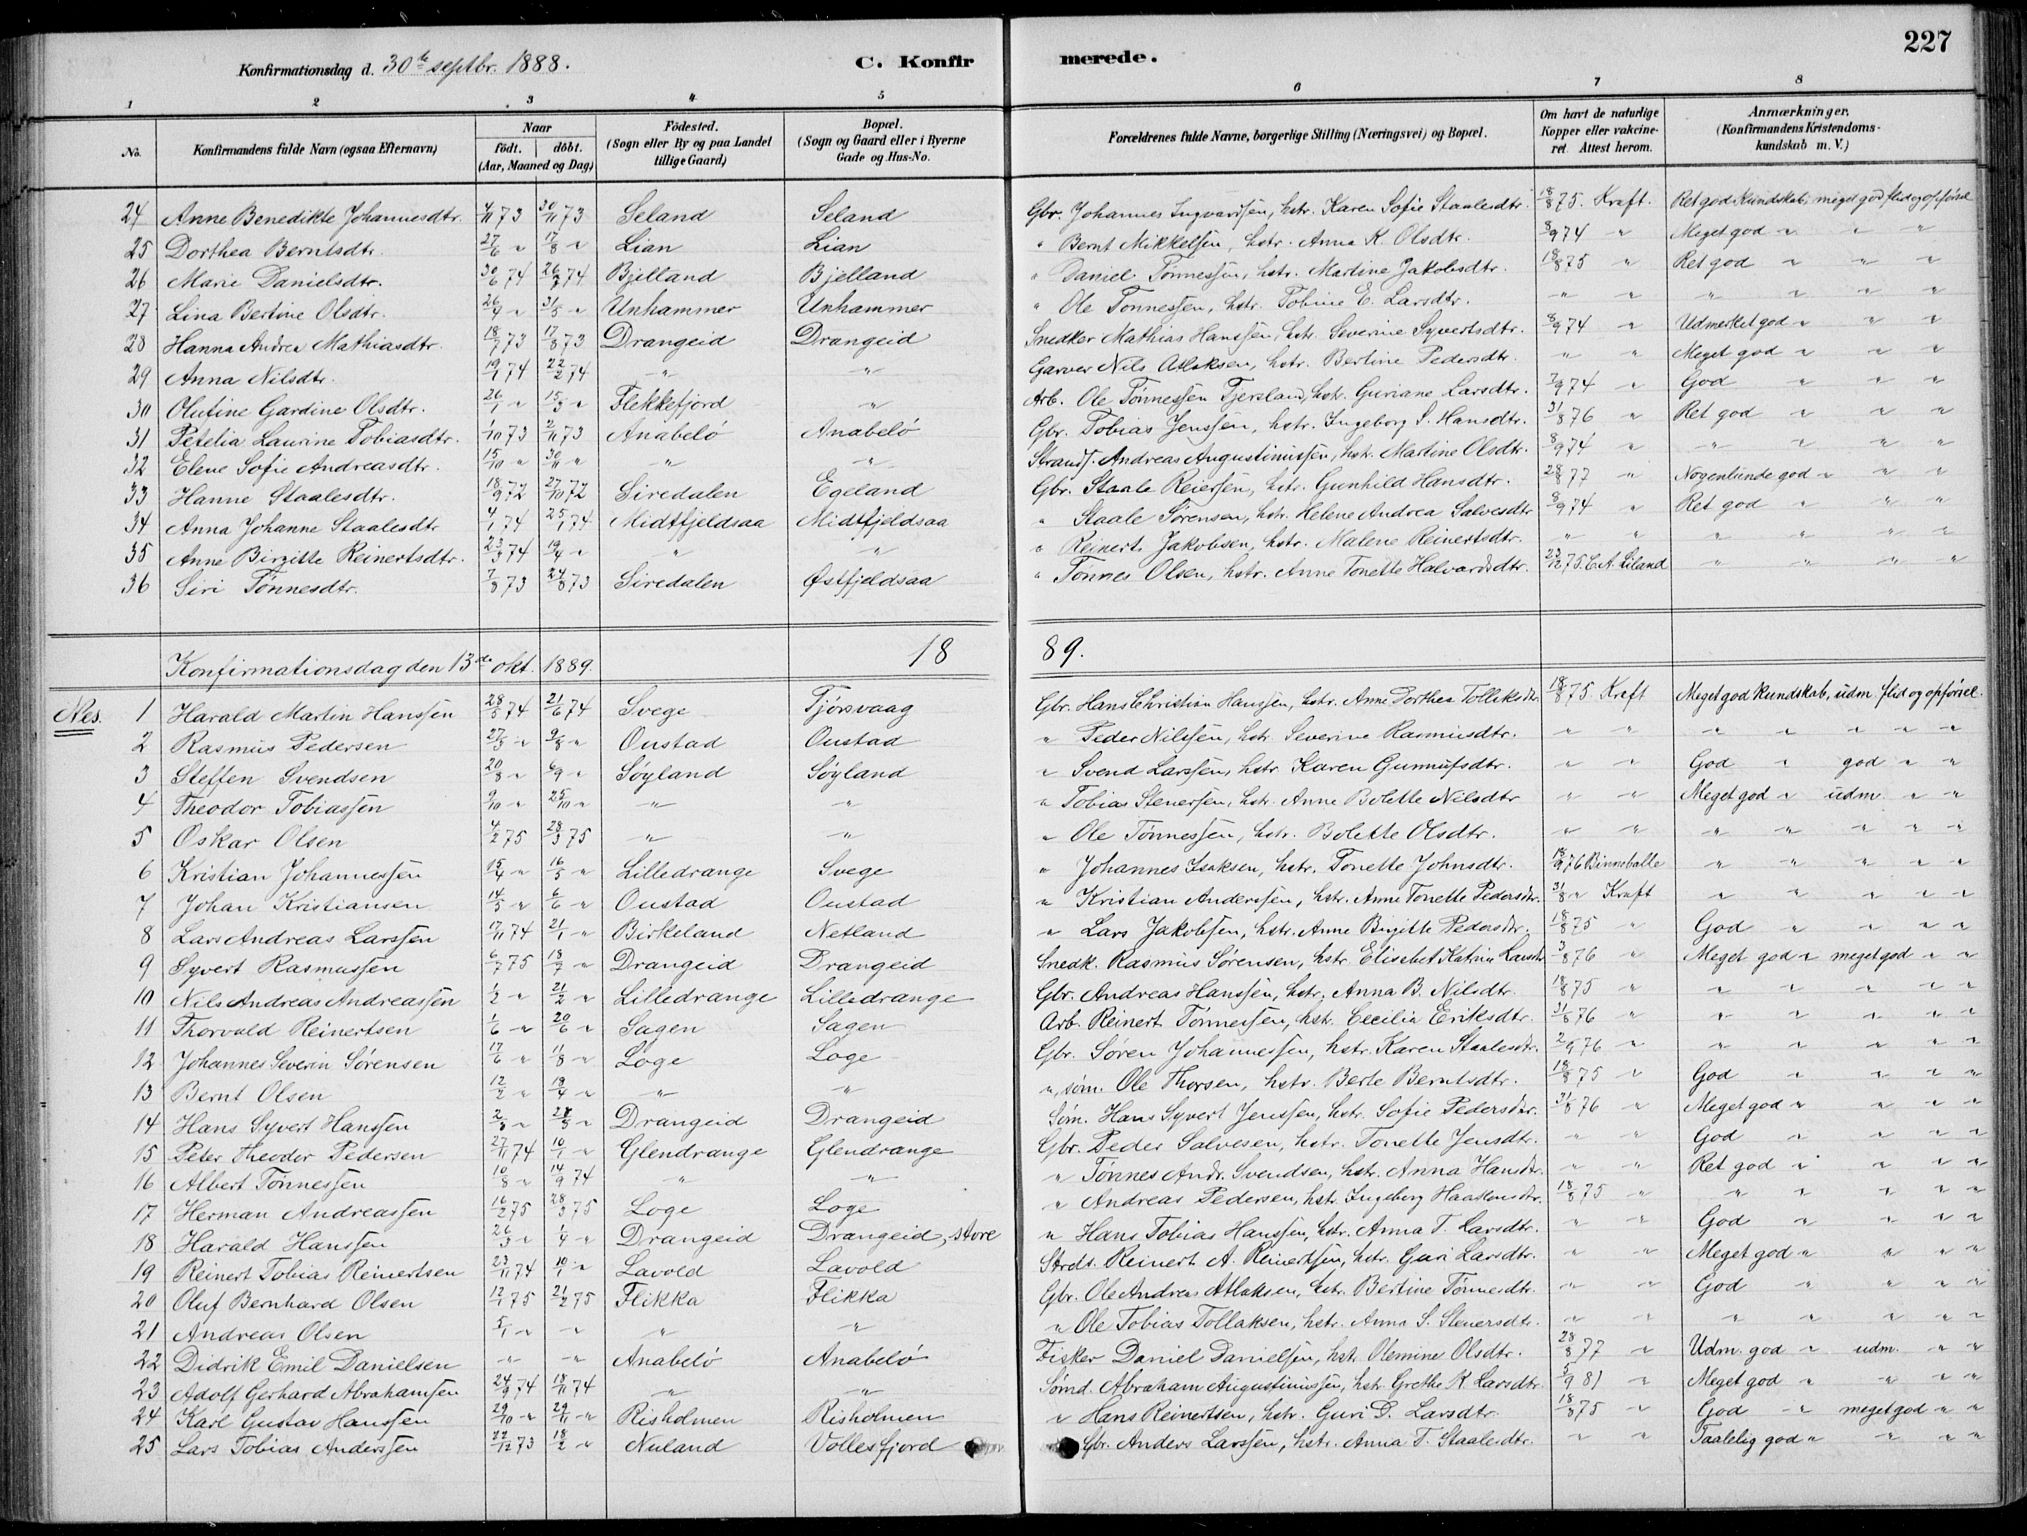 227
Konfirmationsdag d. 30te septbr. 1888. C. Konfir merede.
1 2 3 4 5 6 7 8
No. Konfirmandens fulde Navn (ogsaa Efternavn) Naar født. døbt. (Aar, Maaned og Dag) Fødested. (Sogn eller By og paa Landet tillige Gaard) Bopæl. (Sogn og Gaard eller i Byerne Gade og Hus-No. Forældrenes fulde Navne, borgerlige Stilling (Næringsvei) og Bopæl. Om havt de naturlige Kopper eller vakcineret. Attest herom. Anmærkninger. (Konfirmandens Kristendomskundskab m. V.)
24 Anne Benedikte Johannesdtr. 4/11 73 30/11 73 Seland Seland Gbr. Johannes Ingvardsen, hstr. Karen Sofie Staalesdtr. 18/8 75. Kraft. Ret god Kundskab, meget god flid og opførsel
25 Dorthea Berntsdtr. 27/6 " 17/8 " Lian Lian " Bernt Mikkelsen, hstr. Anna K. Olsdtr. 8/9 74 " Meget god " " "
26 Marie Danielsdtr. 30/6 74 26/7 74 Bjelland Bjelland " Daniel Tønnessen, hstr. Martine Jakobsdtr. 18/8 75 " Ret god " " "
27 Lina Bertine Olsdtr. 26/4 " 31/5 " Unhammer Unhammer " Ole Tønnessen, hstr. Tobine E. Larsdtr. " " " " " "
28 Hanna Andrea Mathiasdtr. 18/7 73 17/8 73 Drangeid Drangeid Snedker Mathias Hanssen, hstr. Severine Syvertsdtr. 8/9 74 " Udmerket god " " "
29 Anna Nilsdtr. 19/1 74 22/2 74 " " Garver Nils Atlaksen, hstr. Bertine Pedersdtr. " " Meget god " " "
30 Olutine Gardine Olsdtr. 26/1 " 15/3 " Flekkefjord " Arb. Ole Tønnessen Tjersland, hstr. Guriane Larsdtr. 7/9 74 " God " " "
31 Petelia Laurine Tobiasdtr. 1/10 73 2/11 73 Anabelø Anabelø Gbr. Tobias Jenssen, hstr. Ingeborg S. Hansdtr. 31/8 76 " Ret god " " "
32 Elene Sofie Andreasdtr. 15/10 " 30/11 " " " Strands. Andreas Augustinussen, hstr. Martine Olsdtr. 8/9 74 " " " " "
33 Hanne Staalesdtr. 18/9 72 27/10 72 Siredalen Egeland Gbr. Staale Reiersen, hstr. Gunhild Hansdtr. 28/8 77 " Nogenlunde god " " "
34 Anna Johanne Staalesdtr 4/1 74 25/1 74 Midtfjeldsaa Midtfjeldsaa " Staale Sørensen, hstr. Helene Andrea Salvesdtr 8/9 74 " Ret god " " "
35 Anne Birgitte Reinertsdtr. 23/3 74 19/4 " " " " Reinert Jakobsen, hstr. Malene Reinertsdtr. " " " " " "
36 Siri Tønnesdtr. 7/8 73 24/8 73 Siredalen Østfjeldsaa " Tønnes Olsen, hstr. Anne Tonette Halvardsdtr. 23/12 75. C.A. Siland " " " "
Konfirmationsdag den 13de okt. 1889. 18 89.
Nes. 1 Harald Martin Hanssen 28/5 74 21/6 74 Svege Tjørsvaag Gbr. Hans Christian Hanssen, hstr. Anne Dorthea Tollaksdtr. 18/8 75 Kraft Meget god kundskab, udm. flid og opførsel.
2 Rasmus Pedersen 27/3 " 9/8 " Oustad Oustad " Peder Nilssen, hstr. Severine Rasmusdtr. " " " " " " "
3 Steffen Svendsen 20/8 " 6/9 " Søyland Søyland " Svend Larssen, hstr. Karen Gunnufsdtr. " " God " god " "
4 Theodor Tobiassen 9/10 " 25/10 " " " " Tobias Stenersen, hstr. Anne Bolette Nilsdtr " " Meget god " udm. " "
5 Oskar Olsen 4/2 75 28/3 75 " " " Ole Tønnessen, hstr. Bolette Olsdtr. " " " " " " "
6 Kristian Johannessen 15/4 " 16/5 " Lilledrange Svege " Johannes Isaksen, hstr. Tonette Johnsdtr. 18/9 76 Binneballe " " " " "
7 Johan Kristiansen 14/5 " 6/6 " Oustad Oustad " Kristian Anderssen, hstr. Anne Tonette Pedersdtr. 31/8 " Kraft " " " " "
8 Lars Andreas Larssen 17/11 74 21/1 " Birkeland Netland " Lars Jakobsen, hstr. Anne Birgitte Pedersdtr. 18/8 75 " God " " " "
9 Syvert Rasmussen 6/7 75 18/7 " Drangeid Drangeid Snedk. Rasmus Sørensen, hstr. Elisebet Katrine Larsdtr 3/8 76 " Meget god " meget god " "
10 Nils Andreas Andreassen 1/2 " 21/2 " Lilledrange Lilledrange Gbr. Andreas Hanssen, hstr. Anna B. Nilsdtr. 18/8 75 " " " " " "
11 Thorvald Reinertsen 1/6 " 20/6 " Sagen Sagen Arb. Reinert Tønnessen, hstr. Cecilia Eriksdtr. 31/8 76 " " " " " "
12 Johannes Severin Sørensen 17/6 " 11/8 " Loge Loge Gbr. Søren Johannessen, hstr. Karen Staalesdtr. 2/9 76 " " " " " "
13 Bernt Olsen 12/2 " 18/4 " " " ", søm. Ole Thorsen, hstr. Berte Berntsdtr. 18/8 75 " God " " " "
14 Hans Syvert Hanssen 2/3 " 28/3 " Drangeid Drangeid Søm. Hans Syvert Jenssen, hstr. Sofie Pedersdtr. 31/8 76 " Meget god " " " "
15 Peter Theodor Pedersen 27/11 74 10/1 " Glendrange Glendrange Gbr. Peder Salvesen, hstr. Tonette Jensdtr. " " God " " " "
16 Albert Tønnessen 10/8 " 14/9 74 " " " Tønnes Andr. Svendsen, hstr. Anna Hansdtr. " " Ret god " " " "
17 Herman Andreassen 16/2 75 28/3 75 Loge Loge " Andreas Pedersen, hstr. Ingeborg Haakonsdtr. 18/8 75 " " " " " "
18 Harald Hanssen 26/3 " 1/4 " Drangeid Drangeid, store " Hans Tobias Hanssen, hstr. Anna T. Larsdtr. " " God " " " "
19 Reinert Tobias Reinertsen 23/11 74 10/1 " Lavold Lavold Strds. Reinert A. Reinertsen, hstr. Guri Larsdtr. " " Meget god " " " "
20 Oluf Bernhard Olsen 12/1 75 21/2 75 Flikka Flikka Gbr. Ole Andreas Atlaksen, hstr. Bertine Tønnesdtr. " " God " " " "
21 Andreas Olsen 5/1 " " " " " Ole Tobias Tollaksen, hstr. Anna S. Stenersdtr. " " " " " " "
22 Didrik Emil Danielsen " " Anabelø Anabelø Fisker Daniel Danielsen, hstr. Olemine Olsdtr. 28/8 77 " Udm. god " udm. " "
23 Adolf Gerhard Abrahamsen 24/9 74 18/11 74 " " Sømd. Abraham Augustinussen, hstr. Grethe K. Larsdtr. 5/9 81 " Meget god " " " "
24 Karl Gustav Hanssen 29/10 " 29/11 " Risholmen Risholmen " Hans Reinertsen, hstr. Guri D. Larsdtr. 18/8 75 " God " meget god " "
25 Lars Tobias Anderssen 22/12 73 18/2 " Nuland Vollesfjord Gbr. Anders Larssen, hstr. Anna T. Staalesdtr. " " Taalelig god " " " "